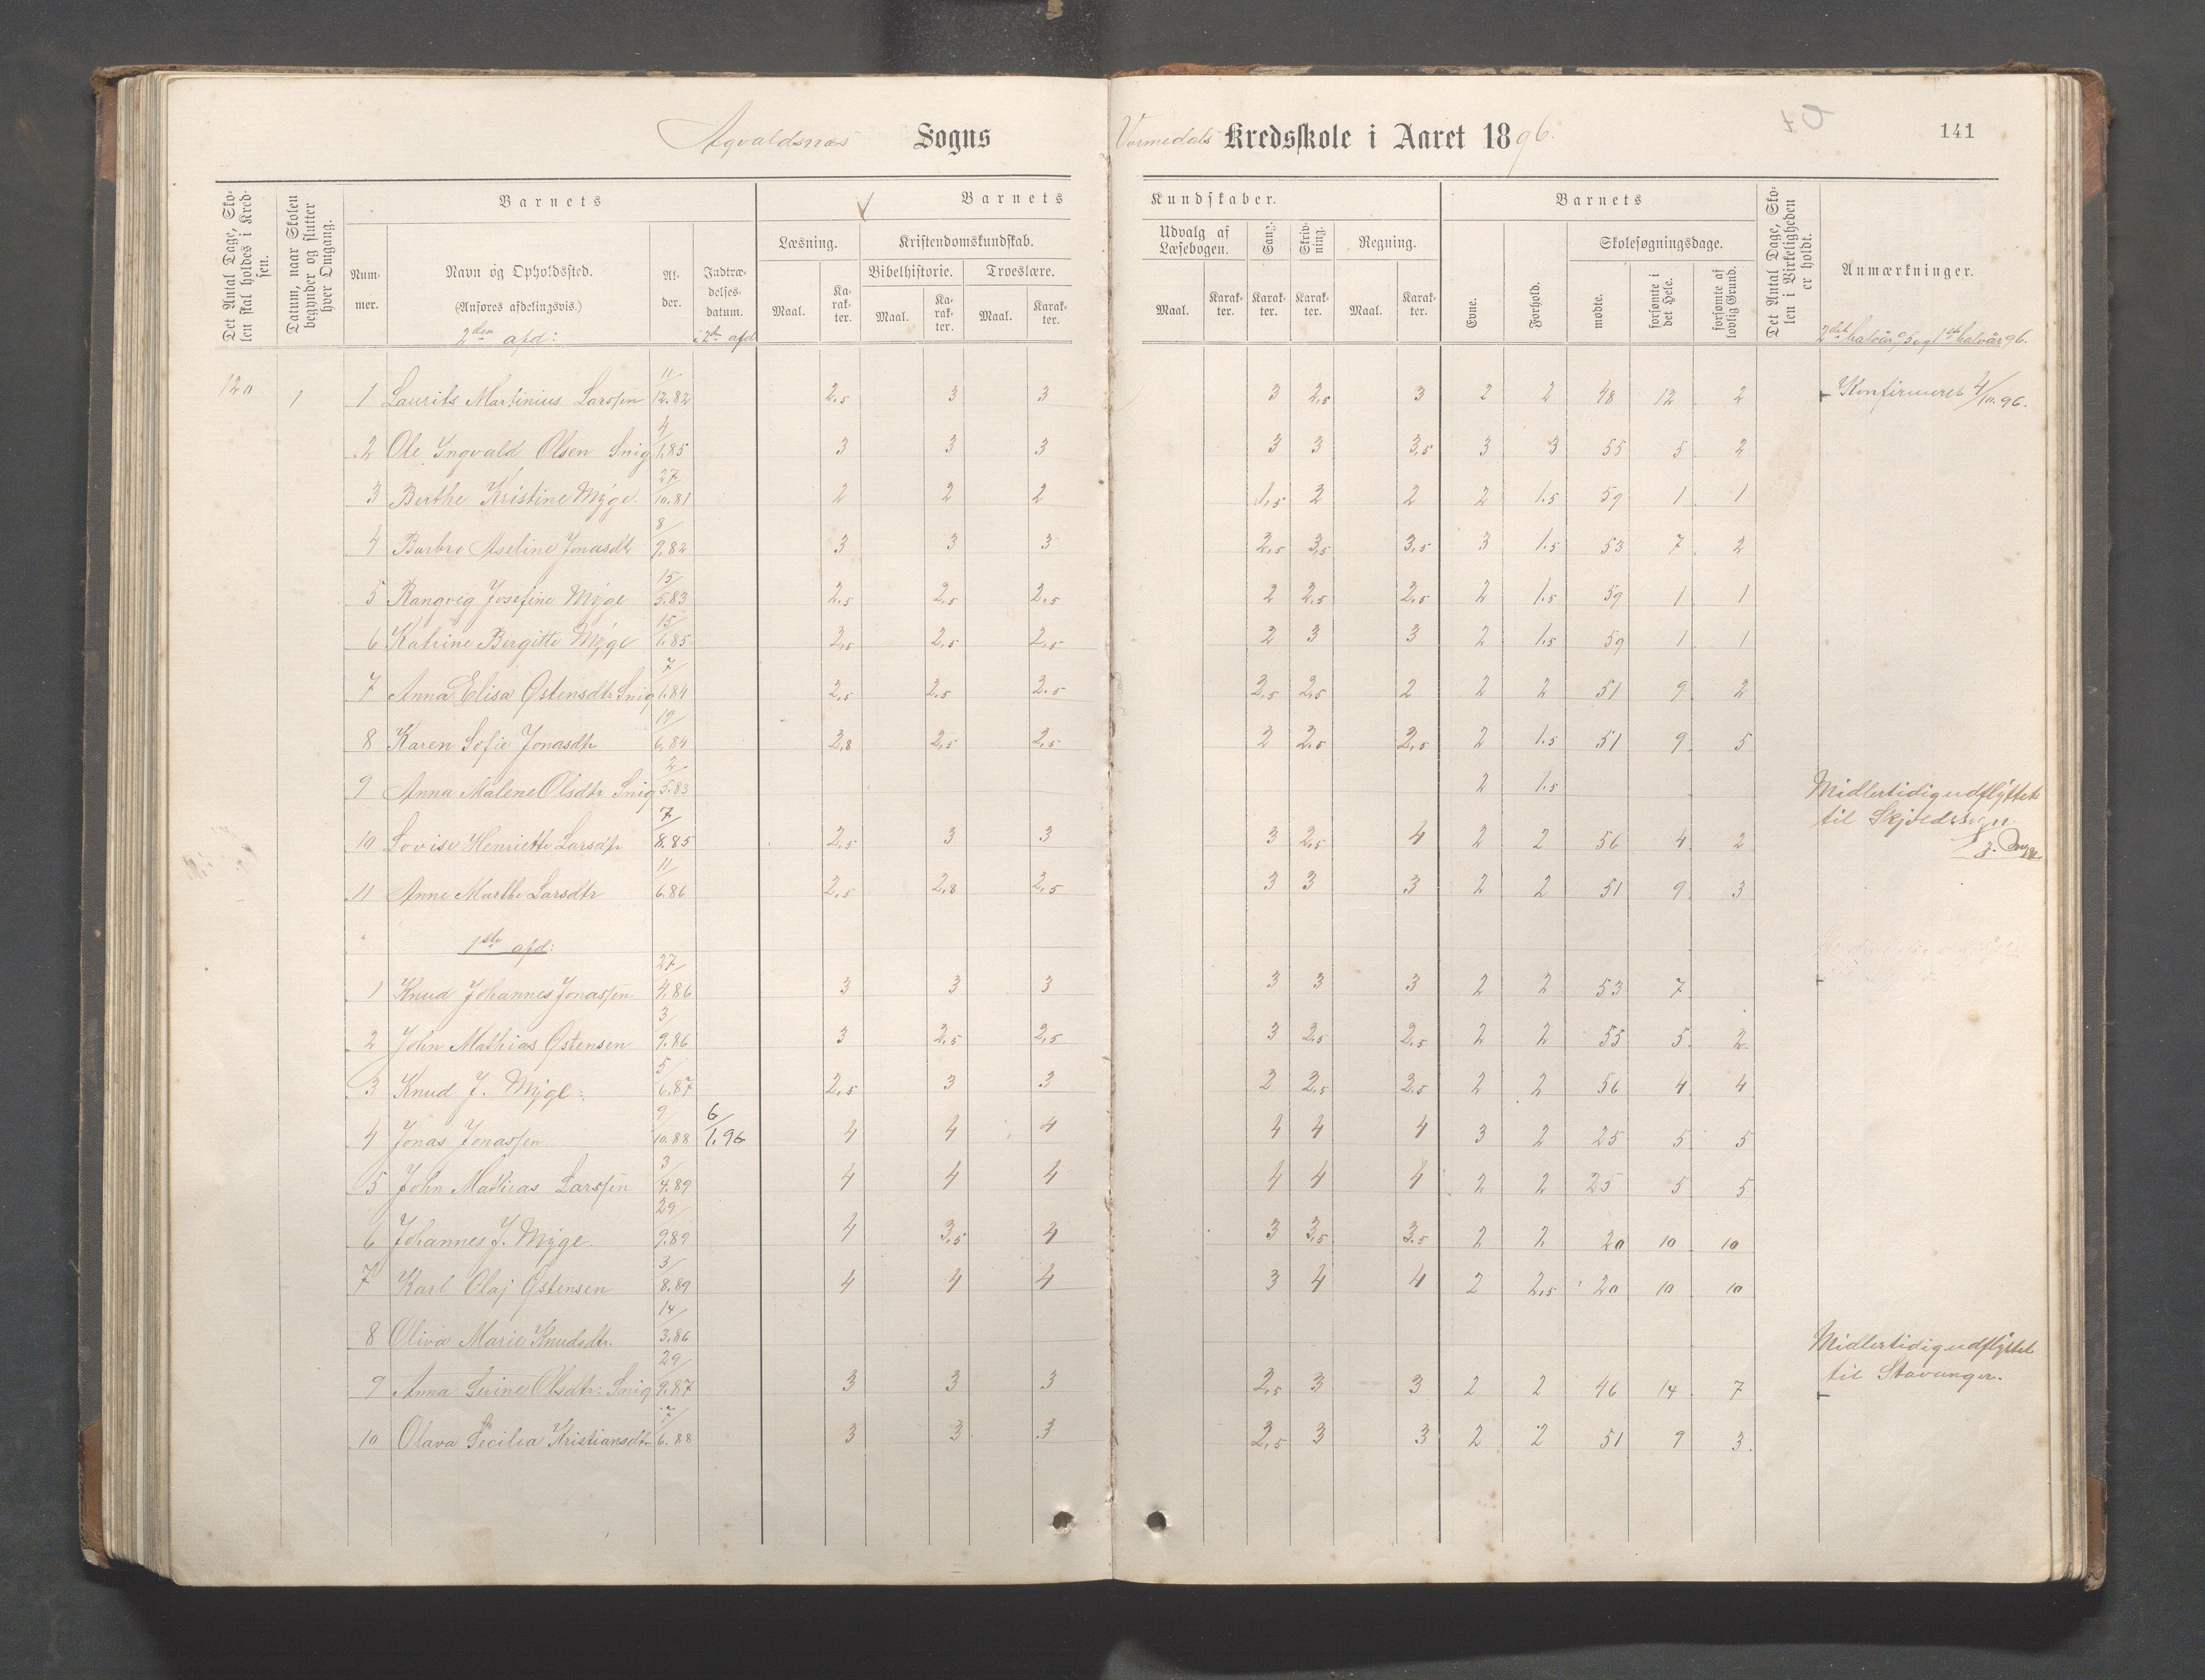 Sogns
Vormedals Kredsskole i Aaret 1896.
141
Det Antal Dage, Skolen skal holdes i Kredsen.
Datum, naar Skolen begynder og slutter hver Omgang.
Barnets
Nummer.
Navn og Opholdssted.
(Anføres afdelingsvis.)
2den afd:
Alder.
Indtrædelsesdatum.
i 2de afd
Barnets Kundskaber.
Læsning.
Maal. Karakter.
Kristendomskundskab.
Bibelhistorie. Troeslære.
Maal. Karakter. Maal. Karakter.
Udvalg af Læsebogen.
Maal. Karakter.
Sang. Karakter.
Skrivning. Karakter.
Regning.
Maal. Karakter.
Barnets
Evne. Forhold.
Skolesøgningsdage.
mødte. forsømte i det Hele. forsømte af lovlig Grund.
Det Antal Dage, Skolen i Virkeligheden er holdt.
Anmærkninger.
120 1 1 Laurits Martinius Larssen 11/12.82 2,5 3 3 3 2,5 3 2 2 48 12 2 Konfirmeret 4/10.96.
2 Ole Ingvald Olsen Snig 4/1.85 3 3 3 3 3 3,5 3 3 55 5 2
3 Berthe Kristine Myge 27/10.81 2 2 2 1,5 2 2 2 1.5 59 1 1
4 Barbro Aseline Jonasdtr 8/9.82 3 3 3 2,5 3,5 3,5 3 1.5 53 7 2
5 Rangveig Josefine Myge 15/5.83 2,5 2,5 2,5 2 2,5 2,5 2 1.5 59 1 1
6 Katrine Bergitte Myge 15/1.85 2,5 2,5 2,5 2 3 3 2 1.5 59 1 1
7 Anna Elisa Østensdtr Snig 7/1.84 2,5 2,5 2,5 2,5 2,5 2 2 2 51 9 2
8 Karen Sofie Jonasdtr 19/6.84 2,8 2,5 2,5 2 2,5 2,5 2 1.5 51 9 5
9 Anna Malene Olsdtr Snig 2/5.83 2 1.5 Midlertidig udflyttet
10 Lovise Henriette Larsdtr 7/8.85 2,5 3 3 3 2,5 4 2 2 56 4 2 til
11 Anne Marthe Larsdtr 11/6.86 2,5 2,8 2,5 3 3 3 2 2 51 9 3
1ste afd:
1 Knud Johannes Jonassen 27/4.86 3 3 3 3 3 3 2 2 53 7
2 John Mathias Østensen 3/9.86 3 2,5 2,5 3 2,5 2,5 2 2 55 5 2
3 Knud J. Myge: 5/6.87 2,5 3 3 2 2,5 2,5 2 2 56 4 4
4 Jonas Jonassen 9/10.88 6/1.96 4 4 4 4 4 4 3 2 25 5 5
5 John Mathias Larssen 3/4.89 4 4 4 4 4 4 2 2 25 5 5
6 Johannes J. Myge 29/9.89 4 3,5 4 3 3,5 3,5 2 2 20 10 10
7 Karl Olaj Østensen 3/8.89 4 4 4 3 4 4 2 2,5 20 10 10
8 Oliva Marie Knudsdtr. 14/3.86 Midlertidig udflyttet
9 Anna Olsdtr: Snig 29/9.87 3 3 3 2,5 3 3 2 2 46 14 7 til Stavanger.
10 Olava Cecilia Kristiansdtr 7/6.88 3 3 3 2,5 3 3 2 2 51 9 3.